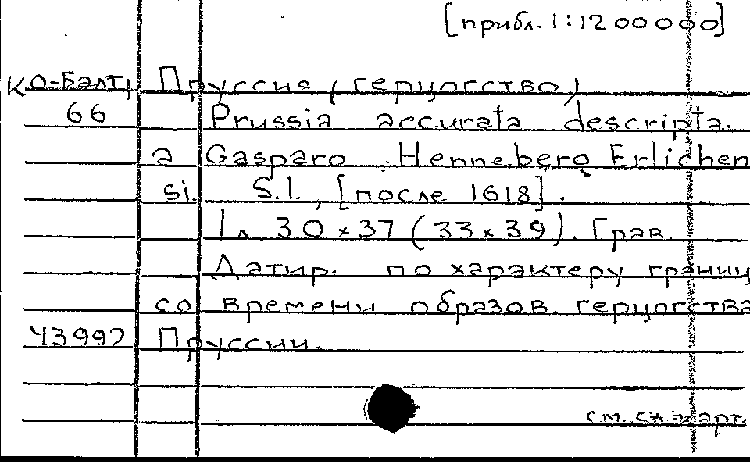 [прибл. 1:1200000]
КО-Балт/ Пруссия (герцогство)
66 Prussia accurata descripta.
a Gasparo Henneberg Erlichen
si. S.l., [после 1618].
1 л. 30×37 (33×39). Грав.
Датир. по характеру границ
со времени образов. герцогства
43992 Пруссии.
см. сл. карт.